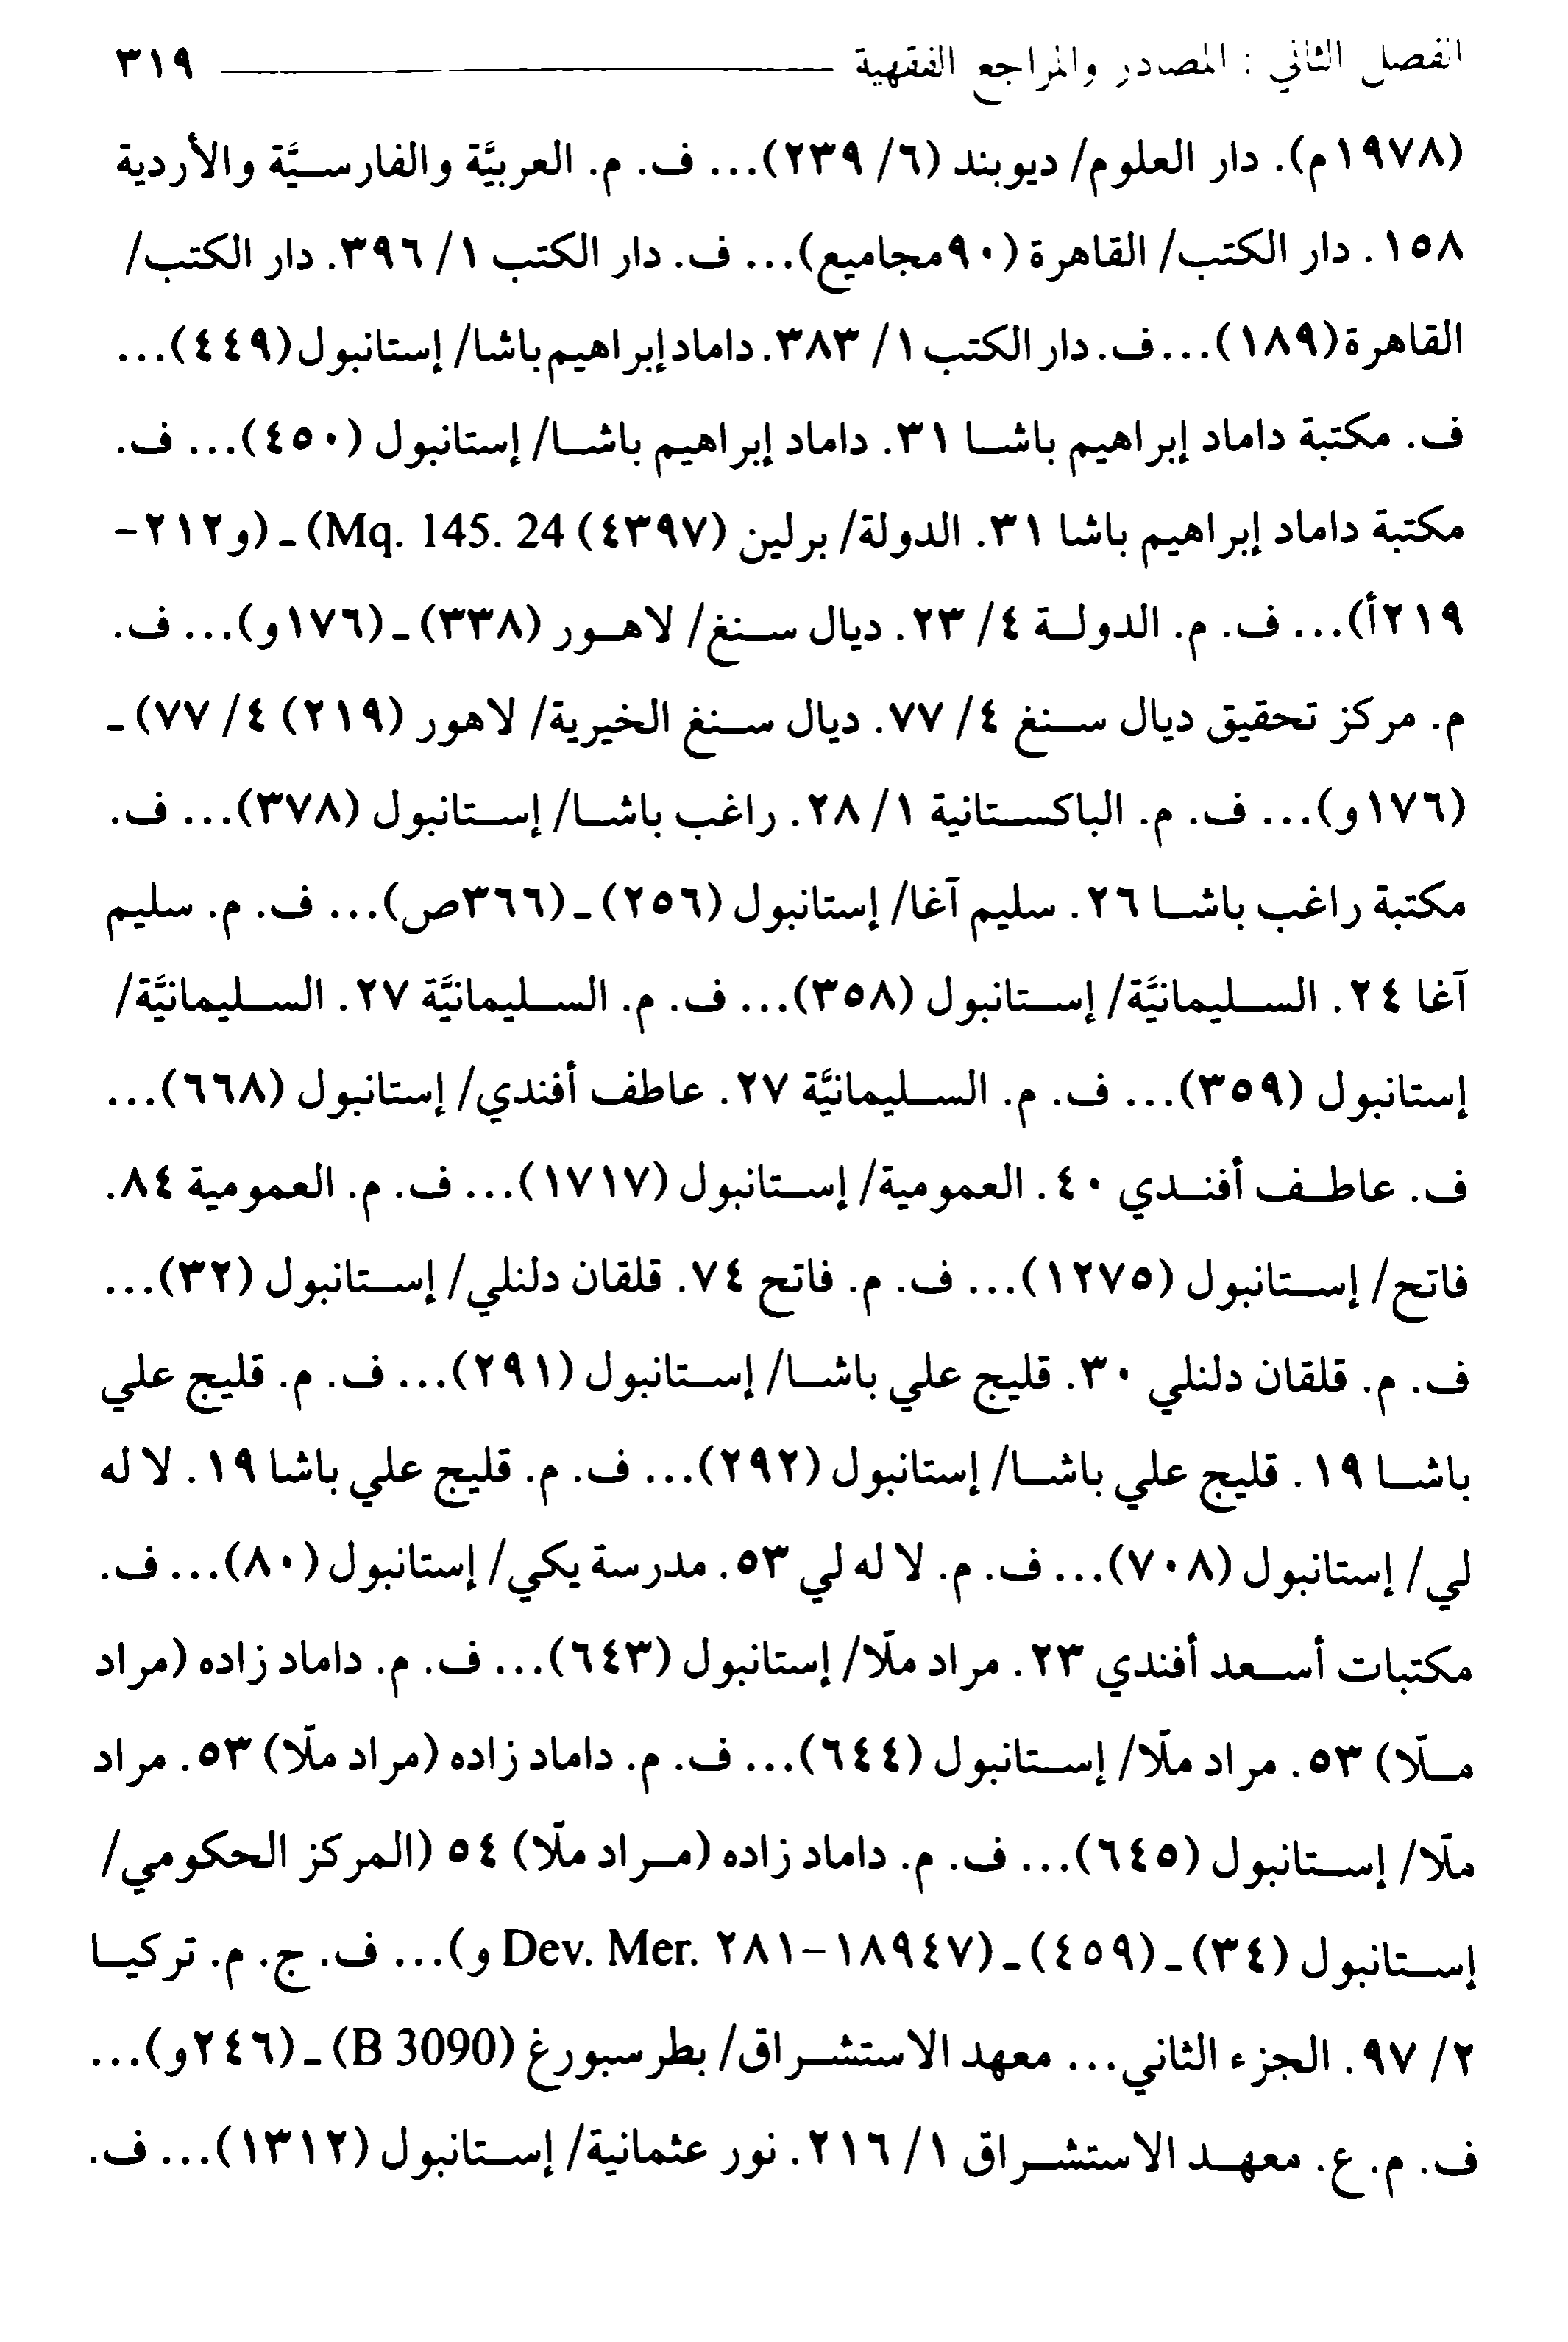 الفصل الثاني : المصادر والمراجع الفقهية ٣١٩
(١٩٧٨م). دار العلوم/ ديوبند (٦/ ٢٣٩)... ف. م. العربيَّة والفارسيَّة والأردية
١٥٨. دار الكتب/ القاهرة (٩٠مجاميع)... ف. دار الكتب ١/ ٣٩٦. دار الكتب/
القاهرة (١٨٩)... ف. دار الكتب ١/ ٣٨٣. داماد إبراهيم باشا/ إستانبول (٤٤٩)...
ف. مكتبة داماد إبراهيم باشا ٣١. داماد إبراهيم باشا/ إستانبول (٤٥٠)... ف.
مكتبة داماد إبراهيم باشا ٣١. الدولة/ برلين (٤٣٩٧) Mq. 145. 24) ـ (و٢١٢-
٢١٩أ)... ف. م. الدولة ٤/ ٢٣. ديال سنغ/ لاهور (٣٣٨) ـ (١٧٦و)... ف.
م. مركز تحقيق ديال سنغ ٤/ ٧٧. ديال سنغ الخيرية/ لاهور (٢١٩) ٤/ ٧٧) ـ
(١٧٦و)... ف. م. الباكستانية ١/ ٢٨. راغب باشا/ إستانبول (٣٧٨)... ف.
مكتبة راغب باشا ٢٦. سليم آغا/ إستانبول (٢٥٦) ـ (٣٦٦ص)... ف. م. سليم
آغا ٢٤. السليمانيَّة/ إستانبول (٣٥٨)... ف. م. السليمانيَّة ٢٧. السليمانيَّة/
إستانبول (٣٥٩)... ف. م. السليمانيَّة ٢٧. عاطف أفندي/ إستانبول (٦٦٨)...
ف. عاطف أفندي ٤٠. العمومية/ إستانبول (١٧١٧)... ف. م. العمومية ٨٤.
فاتح/ إستانبول (١٢٧٥)... ف. م. فاتح ٧٤. قلقان دلنلي/ إستانبول (٣٢)...
ف. م. قلقان دلنلي ٣٠. قليج علي باشا/ إستانبول (٢٩١)... ف. م. قليج علي
باشا ١٩. قليج علي باشا/ إستانبول (٢٩٢)... ف. م. قليج علي باشا ١٩. لا له
لي/ إستانبول (٧٠٨)... ف. م. لا له لي ٥٣. مدرسة يكي/ إستانبول (٨٠)... ف.
مكتبات أسعد أفندي ٢٣. مراد ملّا/ إستانبول (٦٤٣)... ف. م. داماد زاده (مراد
ملّا) ٥٣. مراد ملّا/ إستانبول (٦٤٤)... ف. م. داماد زاده (مراد ملّا) ٥٣. مراد
ملّا/ إستانبول (٦٤٥)... ف. م. داماد زاده (مراد ملّا) ٥٤ (المركز الحكومي/
إستانبول (٣٤) ـ (٤٥٩) ـ (١٨٩٤٧-٢٨١ Dev. Mer. و)... ف. ج. م. تركيا
٢/ ٩٧. الجزء الثاني... معهد الاستشراق/ بطرسبورغ (B 3090) ـ (٢٤٦و)...
ف. م. ع. معهد الاستشراق ١/ ٢١٦. نور عثمانية/ إستانبول (١٣١٢)... ف.